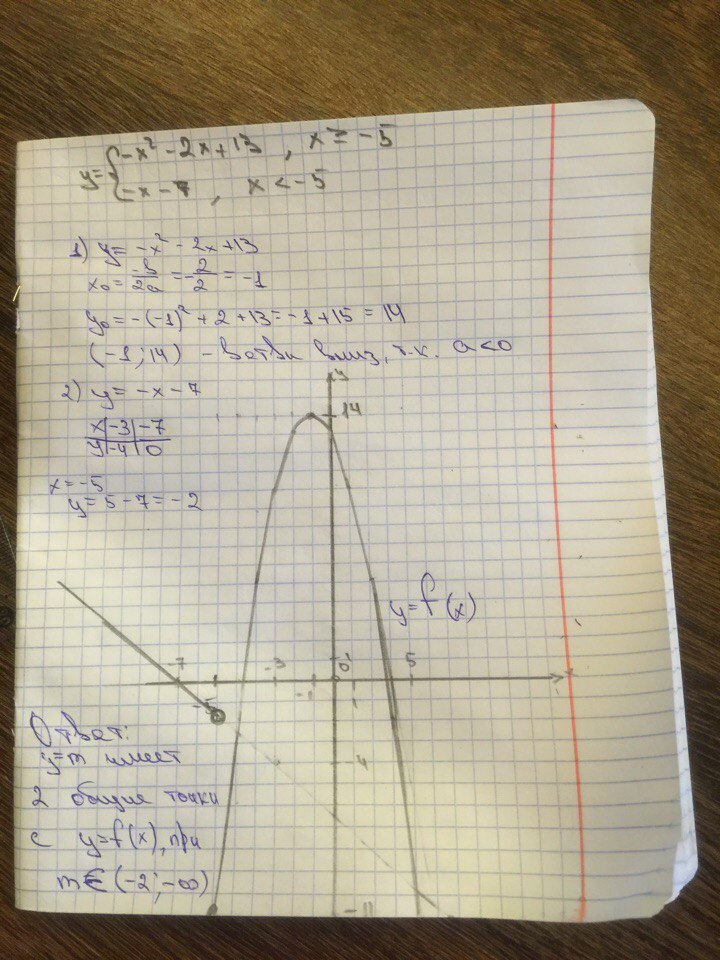 y= { -x² - 2x + 13 , x ≥ -5
-x - 7 , x < -5
1) y = -x² - 2x + 13
x₀ = -b/2a = -2/2 = -1
y₀ = -(-1)² + 2 + 13 = -1 + 15 = 14
(-1; 14) - ветви вниз, т.к. a<0
2) y = -x - 7
x | -3 | -7
y | -4 | 0
x = -5
y = 5 - 7 = -2
y
14
y = f(x)
-7 -5 -3 -1 0 1 1 5 x
-4
-11
Ответ:
y=m имеет
2 общие точки
с y=f(x), при
m ∈ (-2; -∞)